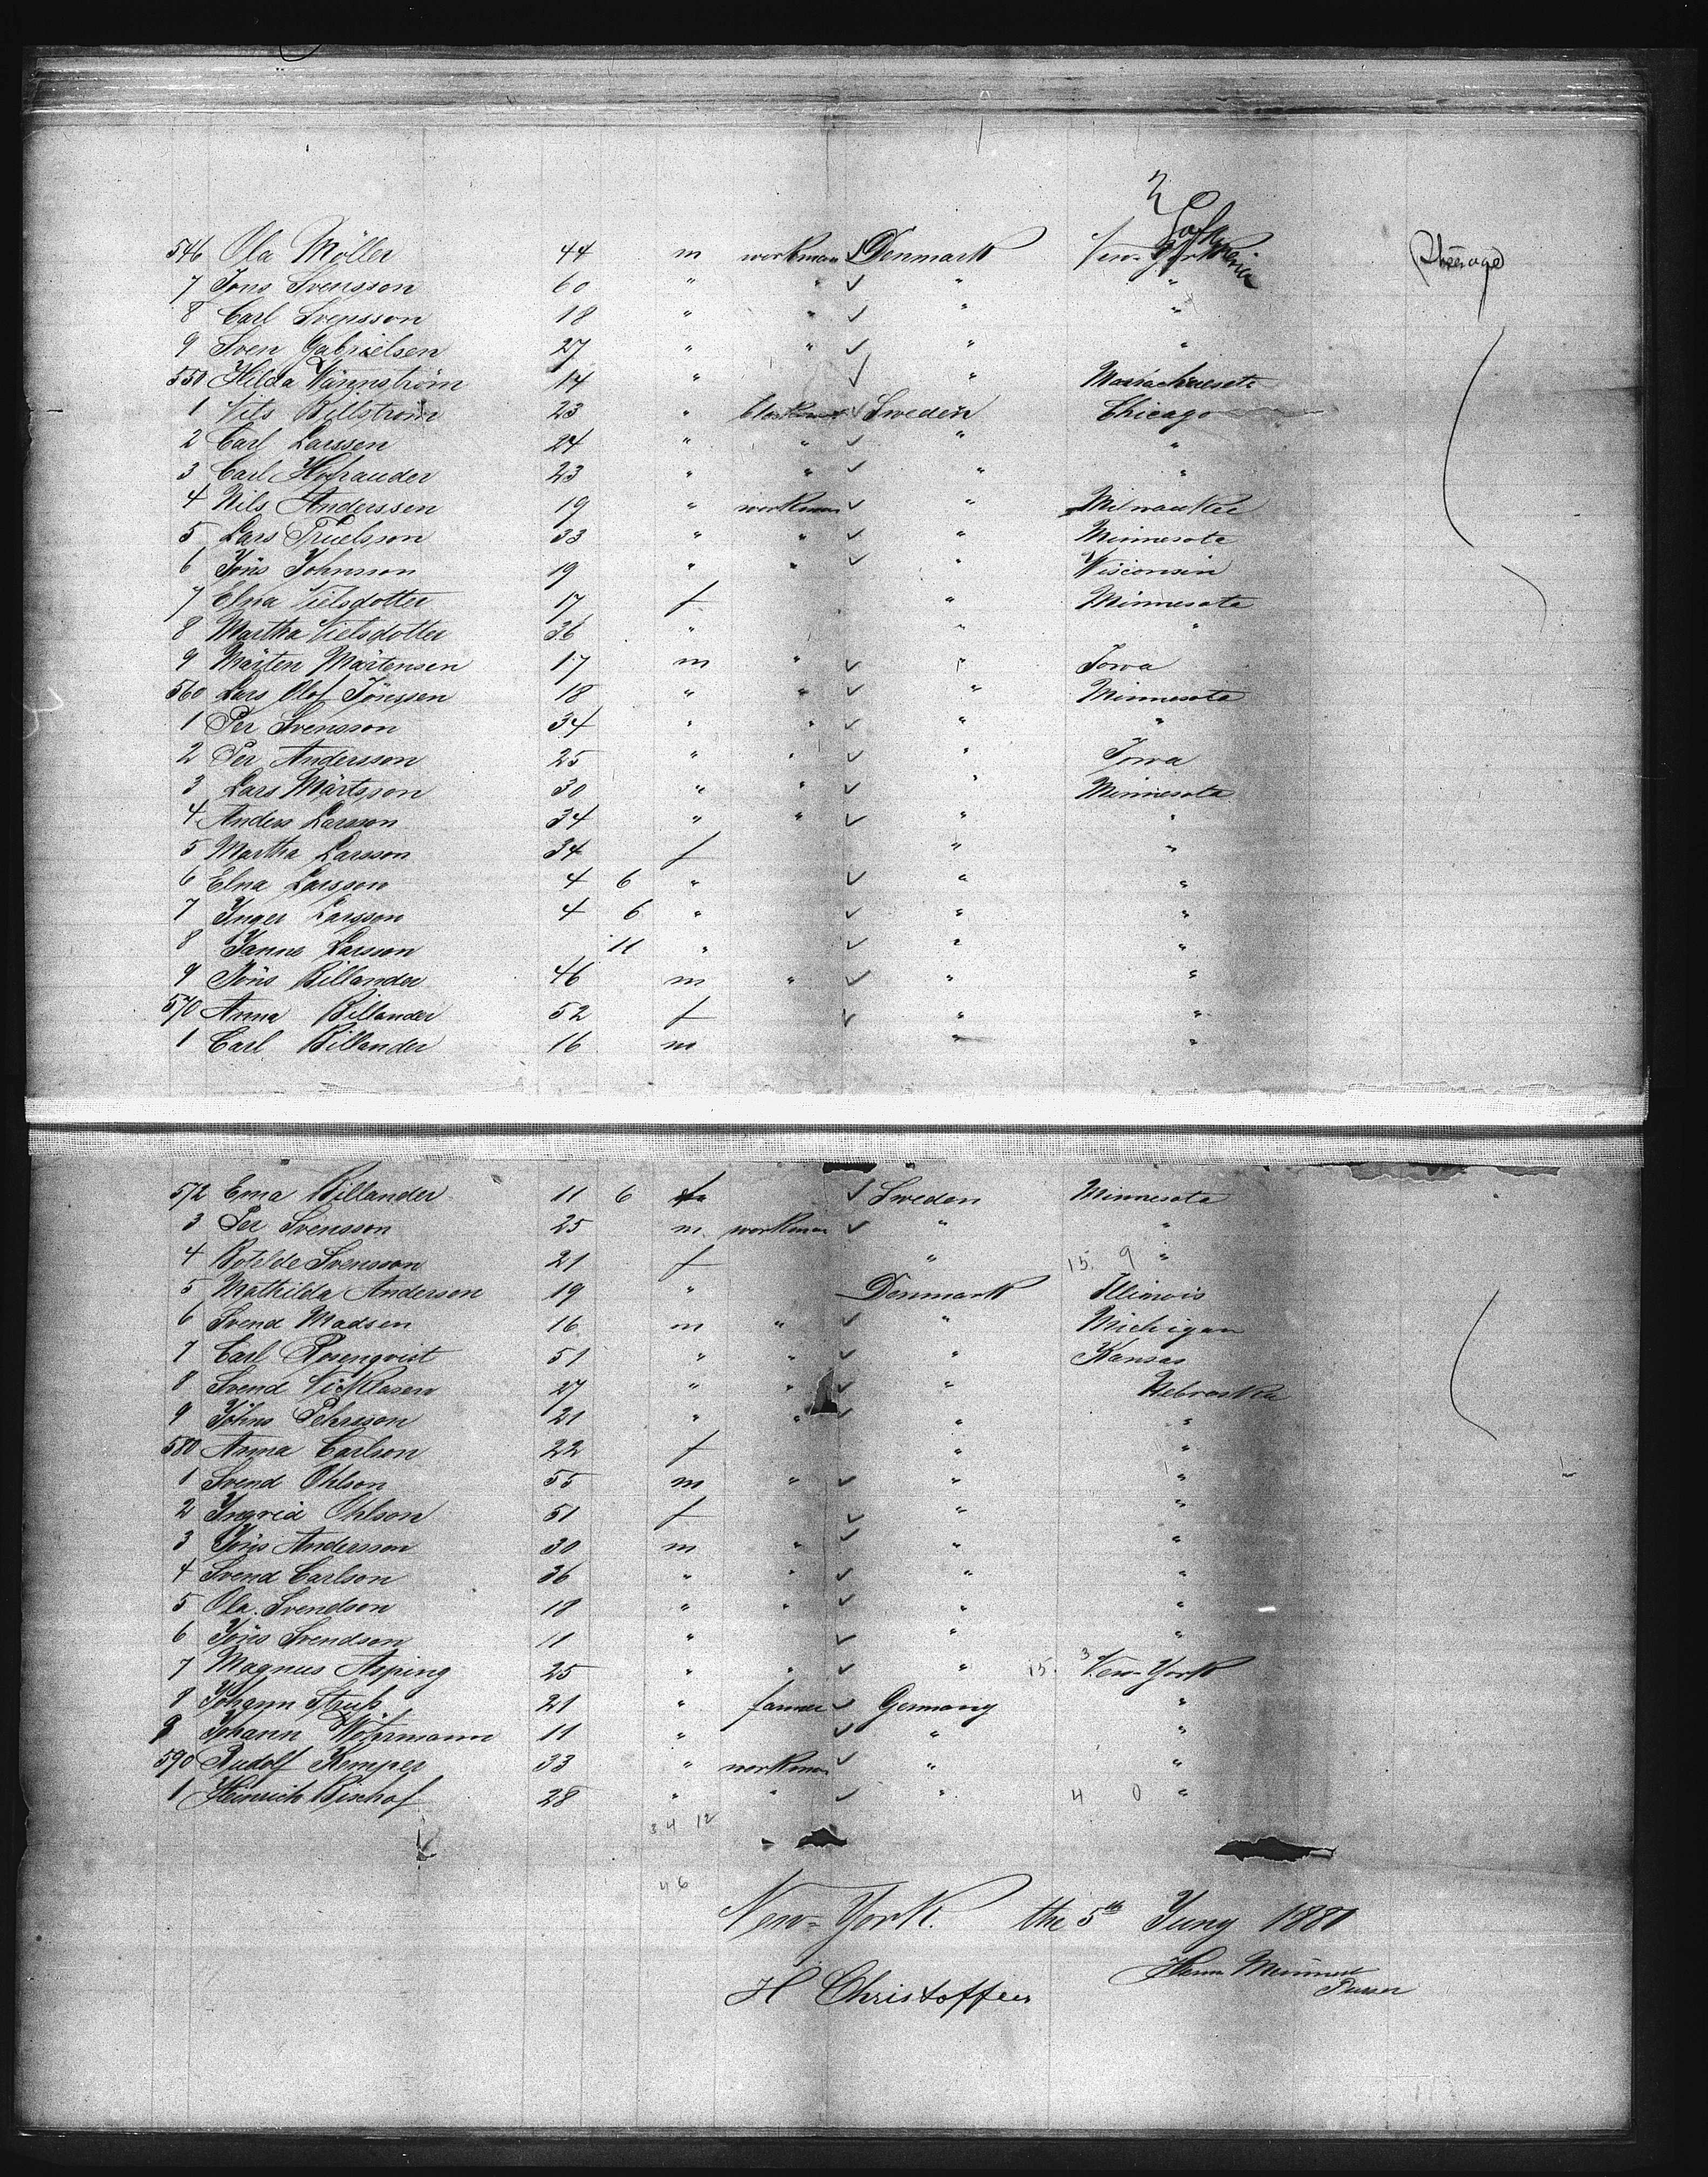 546 Ola Möller 44 m workman ✓ Denmark New-York Steerage
7 Jöns Svensson 60 " " ✓ " "
8 Carl Svensson 18 " " ✓ " "
9 Sven Gabrielsen 27 " " ✓ " "
550 Hilda Wännström 14 " ✓ " Massachusets
1 Nils Billström 23 " ✓ Sweden Chicago
2 Carl Larssen 24 " " ✓ " "
3 Carl 23 " " ✓ " "
4 Nils Anderssen 19 " workman ✓ " Milwaukee
5 Lars Truelsson 33 " " ✓ " Minnesota
6 Jöns Johnsson 19 " " ✓ " Wisconsin
7 Elna Nielsdotter 17 f " Minnesota
8 Martha Nielsdotter 36 " " "
9 Mårten Mårtensen 17 m " ✓ " Iowa
560 Lars Olof Jönssen 18 " " ✓ " Minnesota
1 Per Svensson 34 " " ✓ " "
2 Per Andersson 25 " " ✓ " Iowa
3 Lars Mårtsson 30 " " ✓ " Minnesota
4 Anders Larsson 34 " " ✓ " "
5 Martha Larsson 34 f " "
6 Elna Larsson 4 6 " ✓ " "
7 Inger Larsson 4 6 " ✓ " "
8 Larsson 11 " ✓ " "
9 Jöns Billander 46 m " ✓ " "
570 Anna Billander 52 f ✓ " "
1 Carl Billander 16 m " "
572 Erna Billander 11 6 ✓ Sweden Minnesota
3 Per Svensson 25 m workman ✓ " "
4 Botilde Svensson 21 f " 15 9 "
5 Mathilda Anderson 19 " Denmark Illinois
6 Svend Madsen 16 m " ✓ " Michigan
7 Carl Rosenqvist 51 " " ✓ " Kansas
8 Svend Nicklasen 27 " " ✓ " Nebraska
9 Johns Pehrsson 21 " " ✓ " "
580 Anna Carlson 22 f " "
1 Svend Ohlson 55 m " ✓ " "
2 Ingrid Ohlson 51 f ✓ " "
3 Jöns Andersson 30 m " ✓ " "
4 Svend Carlson 36 " " ✓ " "
5 Ola Svendson 18 " " ✓ " "
6 Jöns Svendson 11 " ✓ " "
7 Magnus Asping 25 " " ✓ " 15. 3 New-York
8 Johann Struß 21 " farmer ✓ Germany "
9 Johann Wöhrmann 11 " ✓ " "
590 Rudolf Kemper 33 " workman ✓ " "
1 Heinrich Bischof 28 " " ✓ " 4 0 "
34 12
46
New-York. the 5th Juny 1881
Herm
Purser
H Christoffers